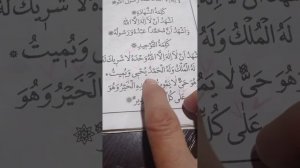 كَلِمَةُ الشَّهَادَةِ
اَشْهَدُ اَنْ لَا اِلٰهَ اِلَّا اللّٰهُ
وَاَشْهَدُ اَنَّ مُحَمَّدًا عَبْدُهُ وَرَسُولُهُ
كَلِمَةُ التَّوْحِيدِ
اَشْهَدُ اَنْ لَا اِلٰهَ اِلَّا اللّٰهُ وَحْدَهُ لَا شَرِيكَ لَهُ
لَهُ الْمُلْكُ وَلَهُ الْحَمْدُ يُحْيِي وَيُمِيتُ
وَهُوَ حَيٌّ لَا يَمُوتُ الْخَيْرُ وَهُوَ
عَلٰى كُلِّ